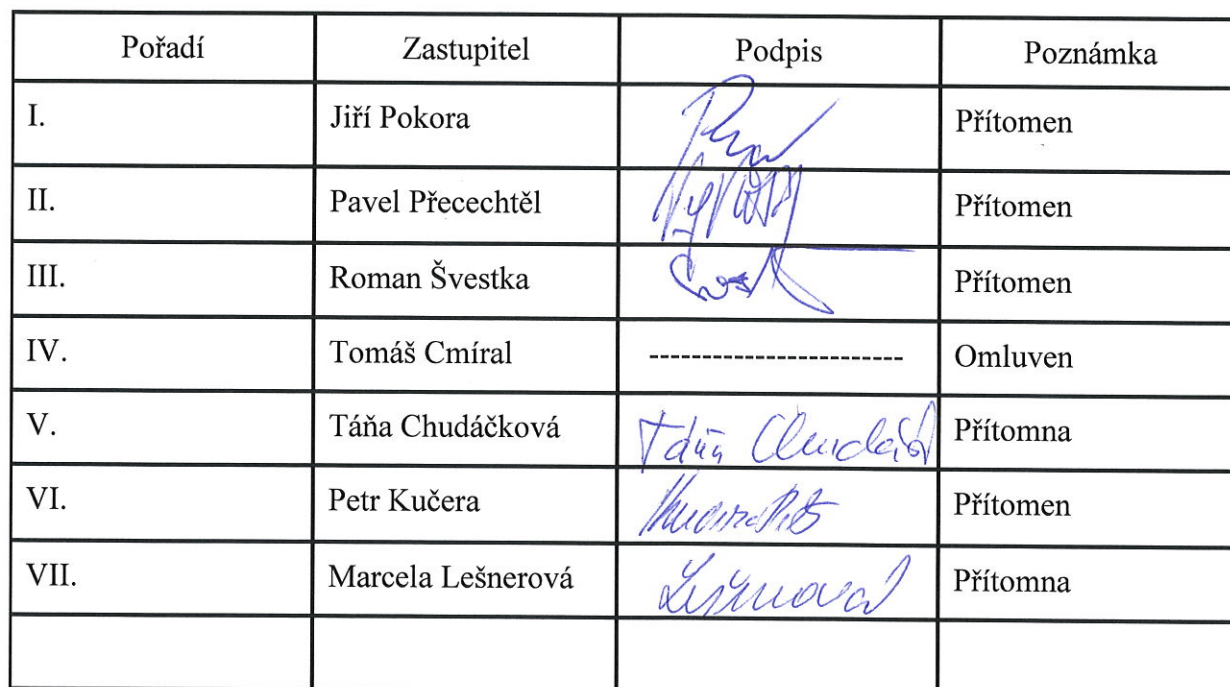 Pořadí Zastupitel Podpis Poznámka
I. Jiří Pokora Přítomen
II. Pavel Přecechtěl Přítomen
III. Roman Švestka Přítomen
IV. Tomáš Cmíral ------------------------ Omluven
V. Táňa Chudáčková Táňa Přítomna
VI. Petr Kučera Přítomen
VII. Marcela Lešnerová Přítomna